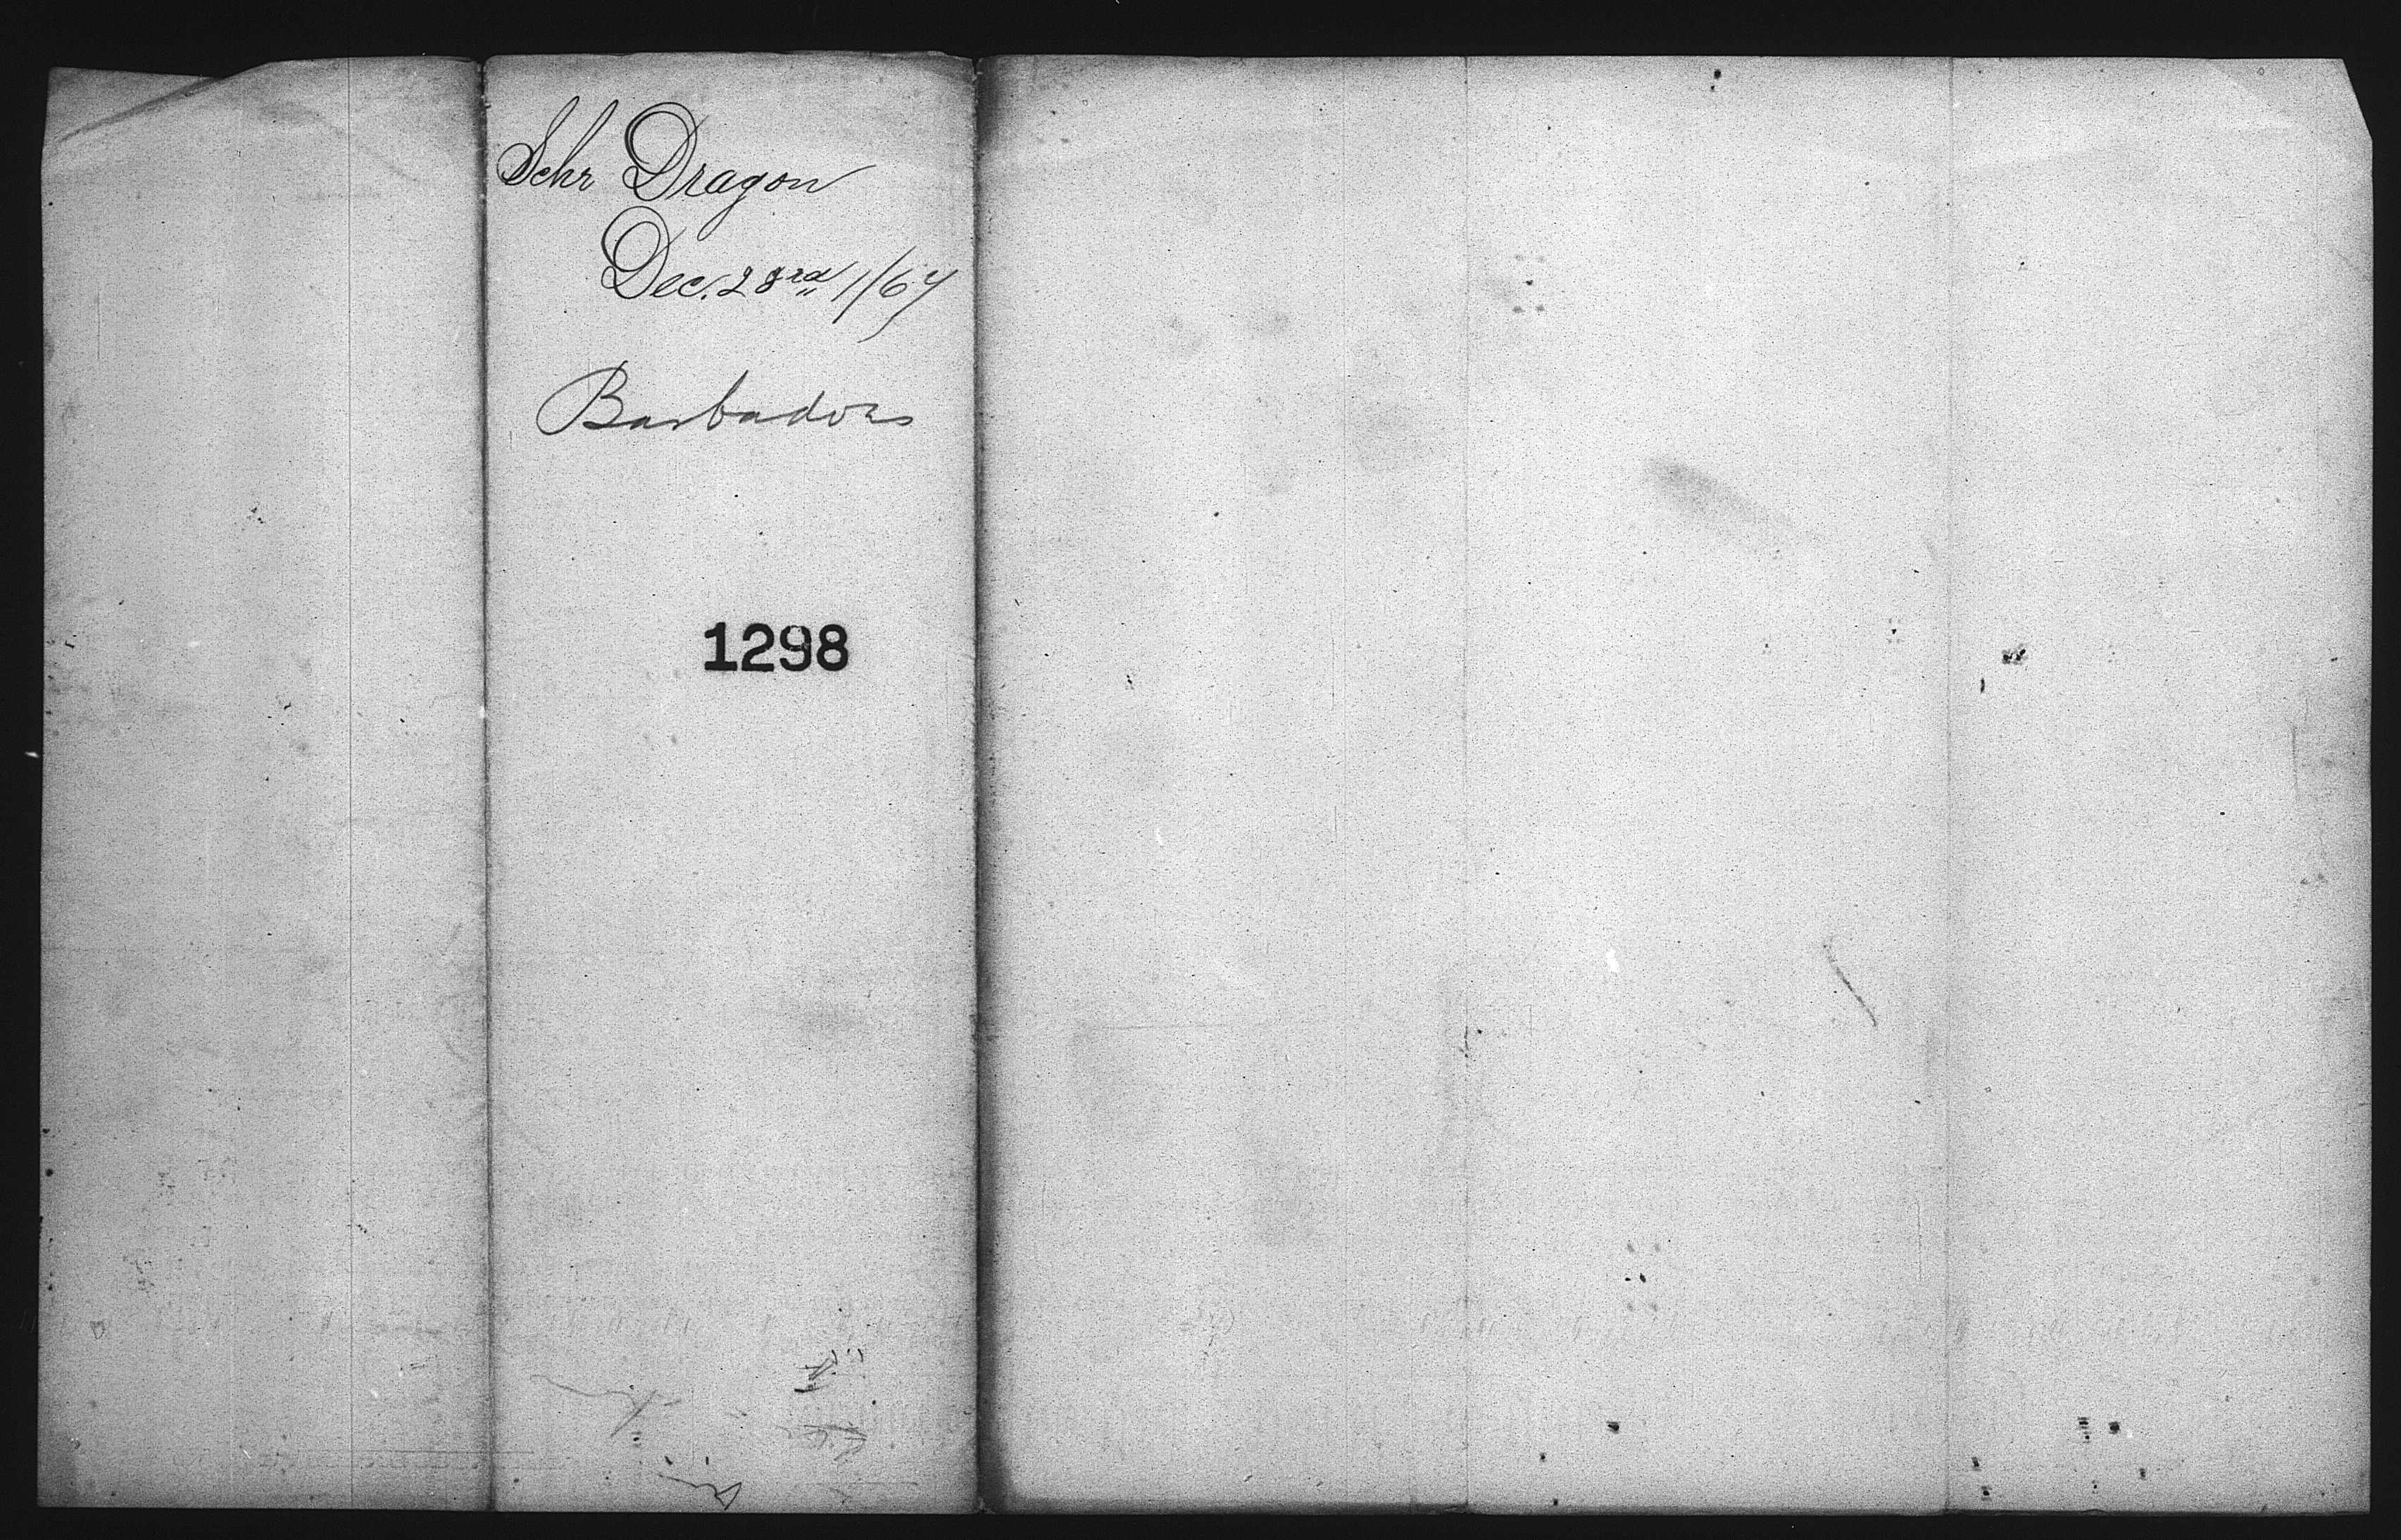 Schr Dragon
Dec. 23rd 1/67
Barbadoes
1298